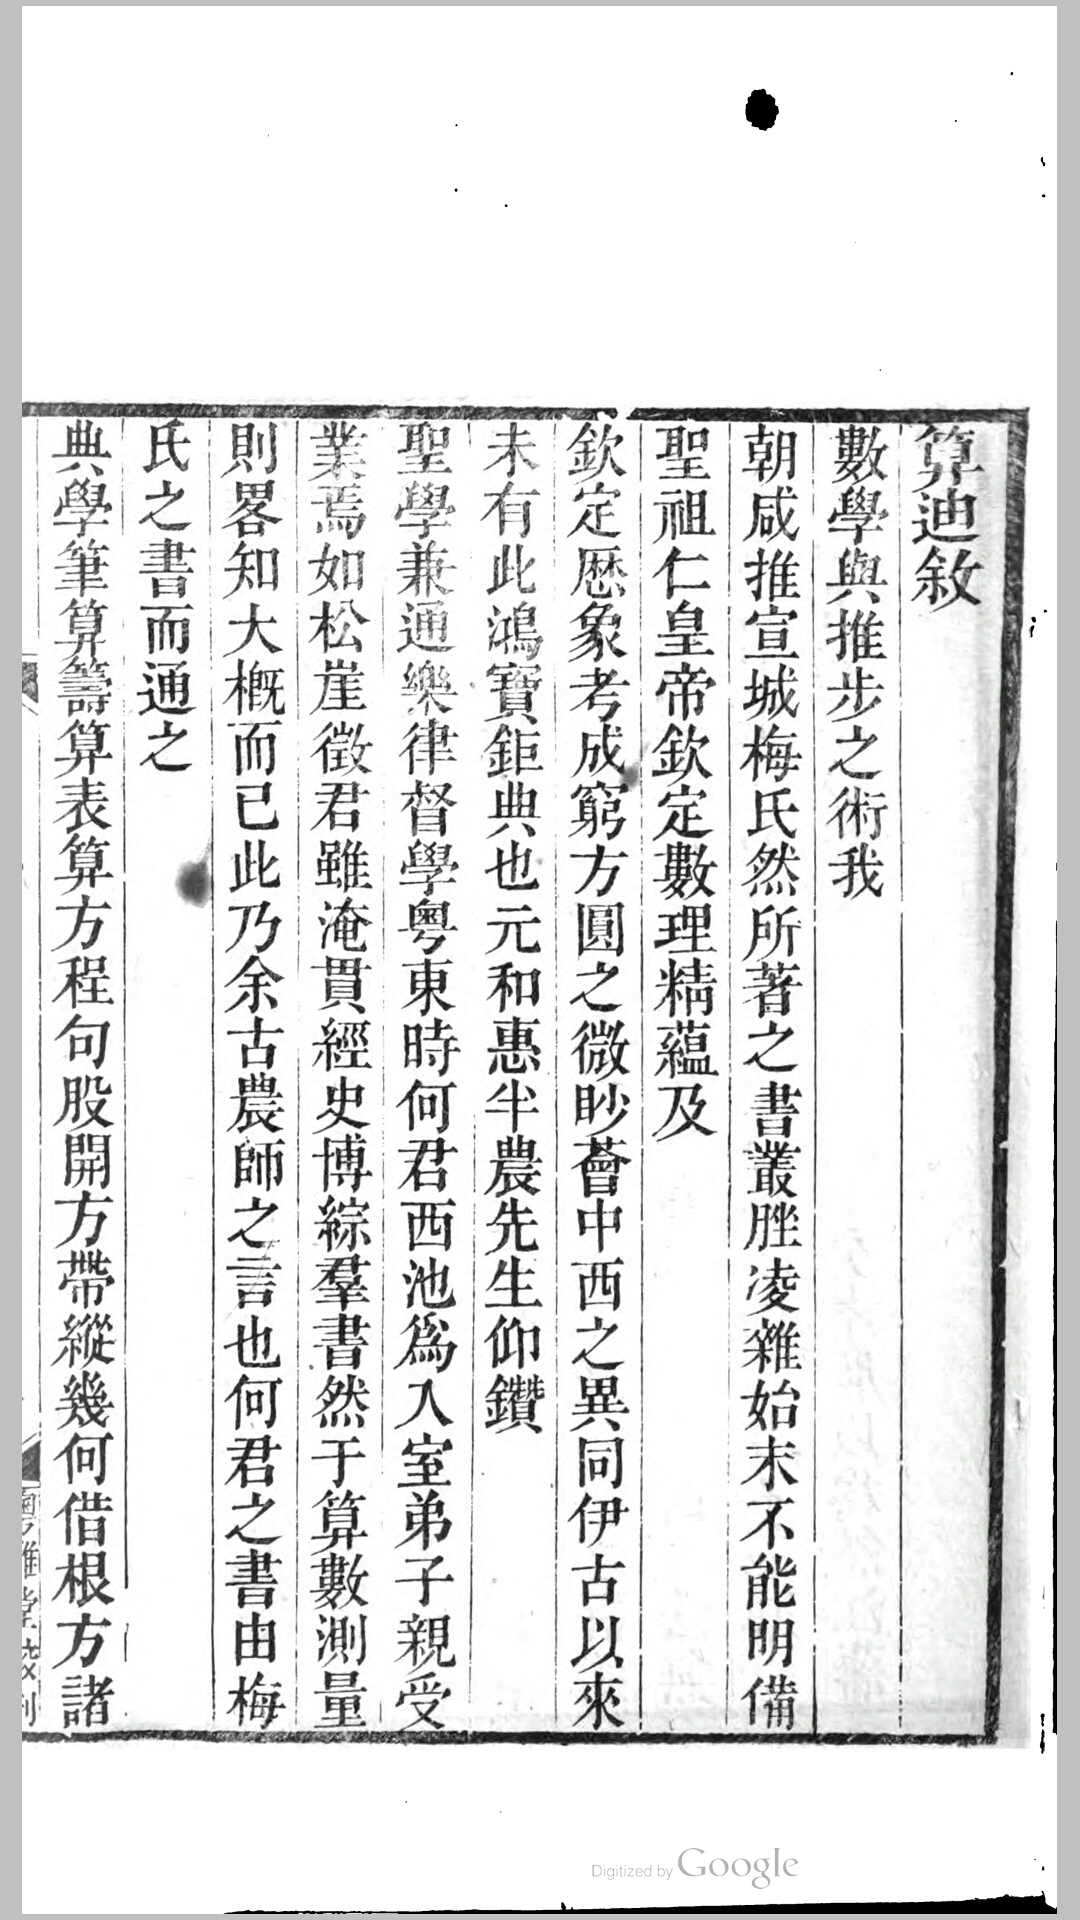 算迪敘
數學與推步之術我
朝咸推宣城梅氏然所著之書叢脞凌雜始末不能明備
聖祖仁皇帝欽定數理精蘊及
欽定歷象考成窮方圓之微眇薈中西之異同伊古以來
未有此鴻寶鉅典也元和惠半農先生仰鑽
聖學兼通樂律督學粵東時何君西池爲入室弟子親受
業焉如松崖徵君雖淹貫經史博綜羣書然于算數測量
則畧知大槪而已此乃余古農師之言也何君之書由梅
氏之書而通之
典學筆算籌算表算方程句股開方帶縱幾何借根方諸
Digitized by Google